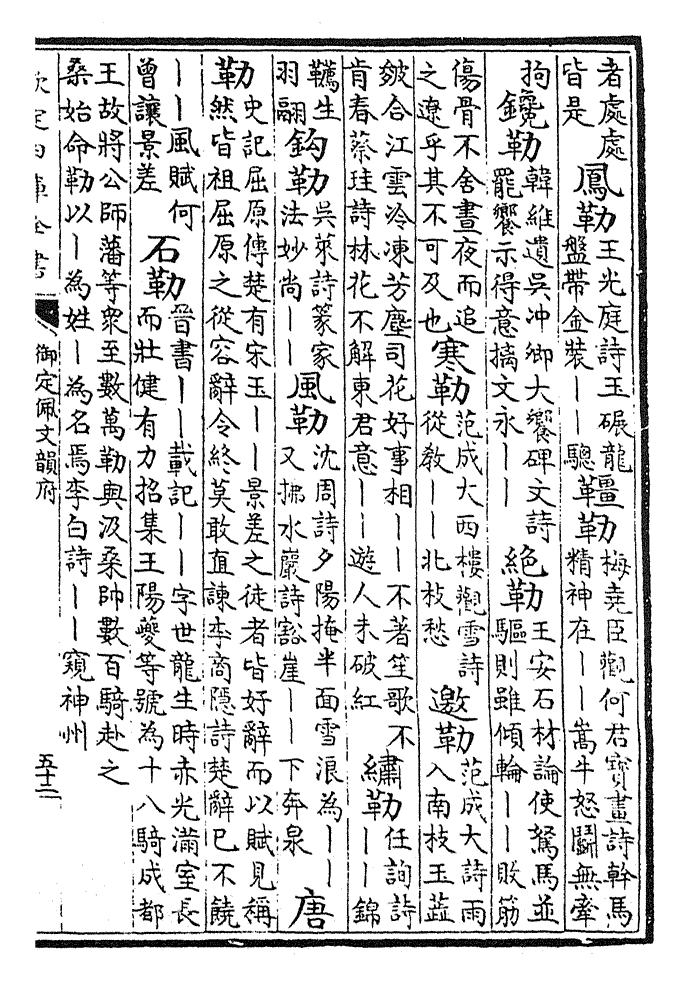 者處處皆是 鳳勒 王光庭詩玉碾龍盤帶金裝——驄 韁勒 梅堯臣觀何君寶畫詩幹馬精神在——嵩牛怒鬭無牽
拘 鑱勒 韓維遺吳冲卿大饗碑文詩罷饗示得意摛文永—— 絕勒 王安石材論使駑馬並驅則雖傾輪——敗筋
傷骨不舍晝夜而追之遼乎其不可及也 寒勒 范成大西樓觀雪詩從教——北枝愁 邀勒 范成大詩雨入南枝玉蘂
皴合江雲冷凍芳塵司花好事相——不著笙歌不肯春蔡珪詩林花不解東君意——遊人未破紅 繡勒 任詢詩——錦
韉生羽翮 鈎勒 吳萊詩篆家法妙尚—— 風勒 沈周詩夕陽掩半面雪浪為——又拂水巖詩豁崖——下奔泉 唐
勒 史記屈原傳楚有宋玉——景差之徒者皆好辭而以賦見稱然皆祖屈原之從容辭令終莫敢直諫李商隱詩楚辭已不饒
——風賦何曾讓景差 石勒 晉書——載記——字世龍生時赤光滿室長而壯健有力招集王陽夔等號為十八騎成都
王故將公師藩等衆至數萬勒與汲桑帥數百騎赴之桑始命勒以—為姓—為名焉李白詩——窺神州
欽定四庫全書
御定佩文韻府
五十二